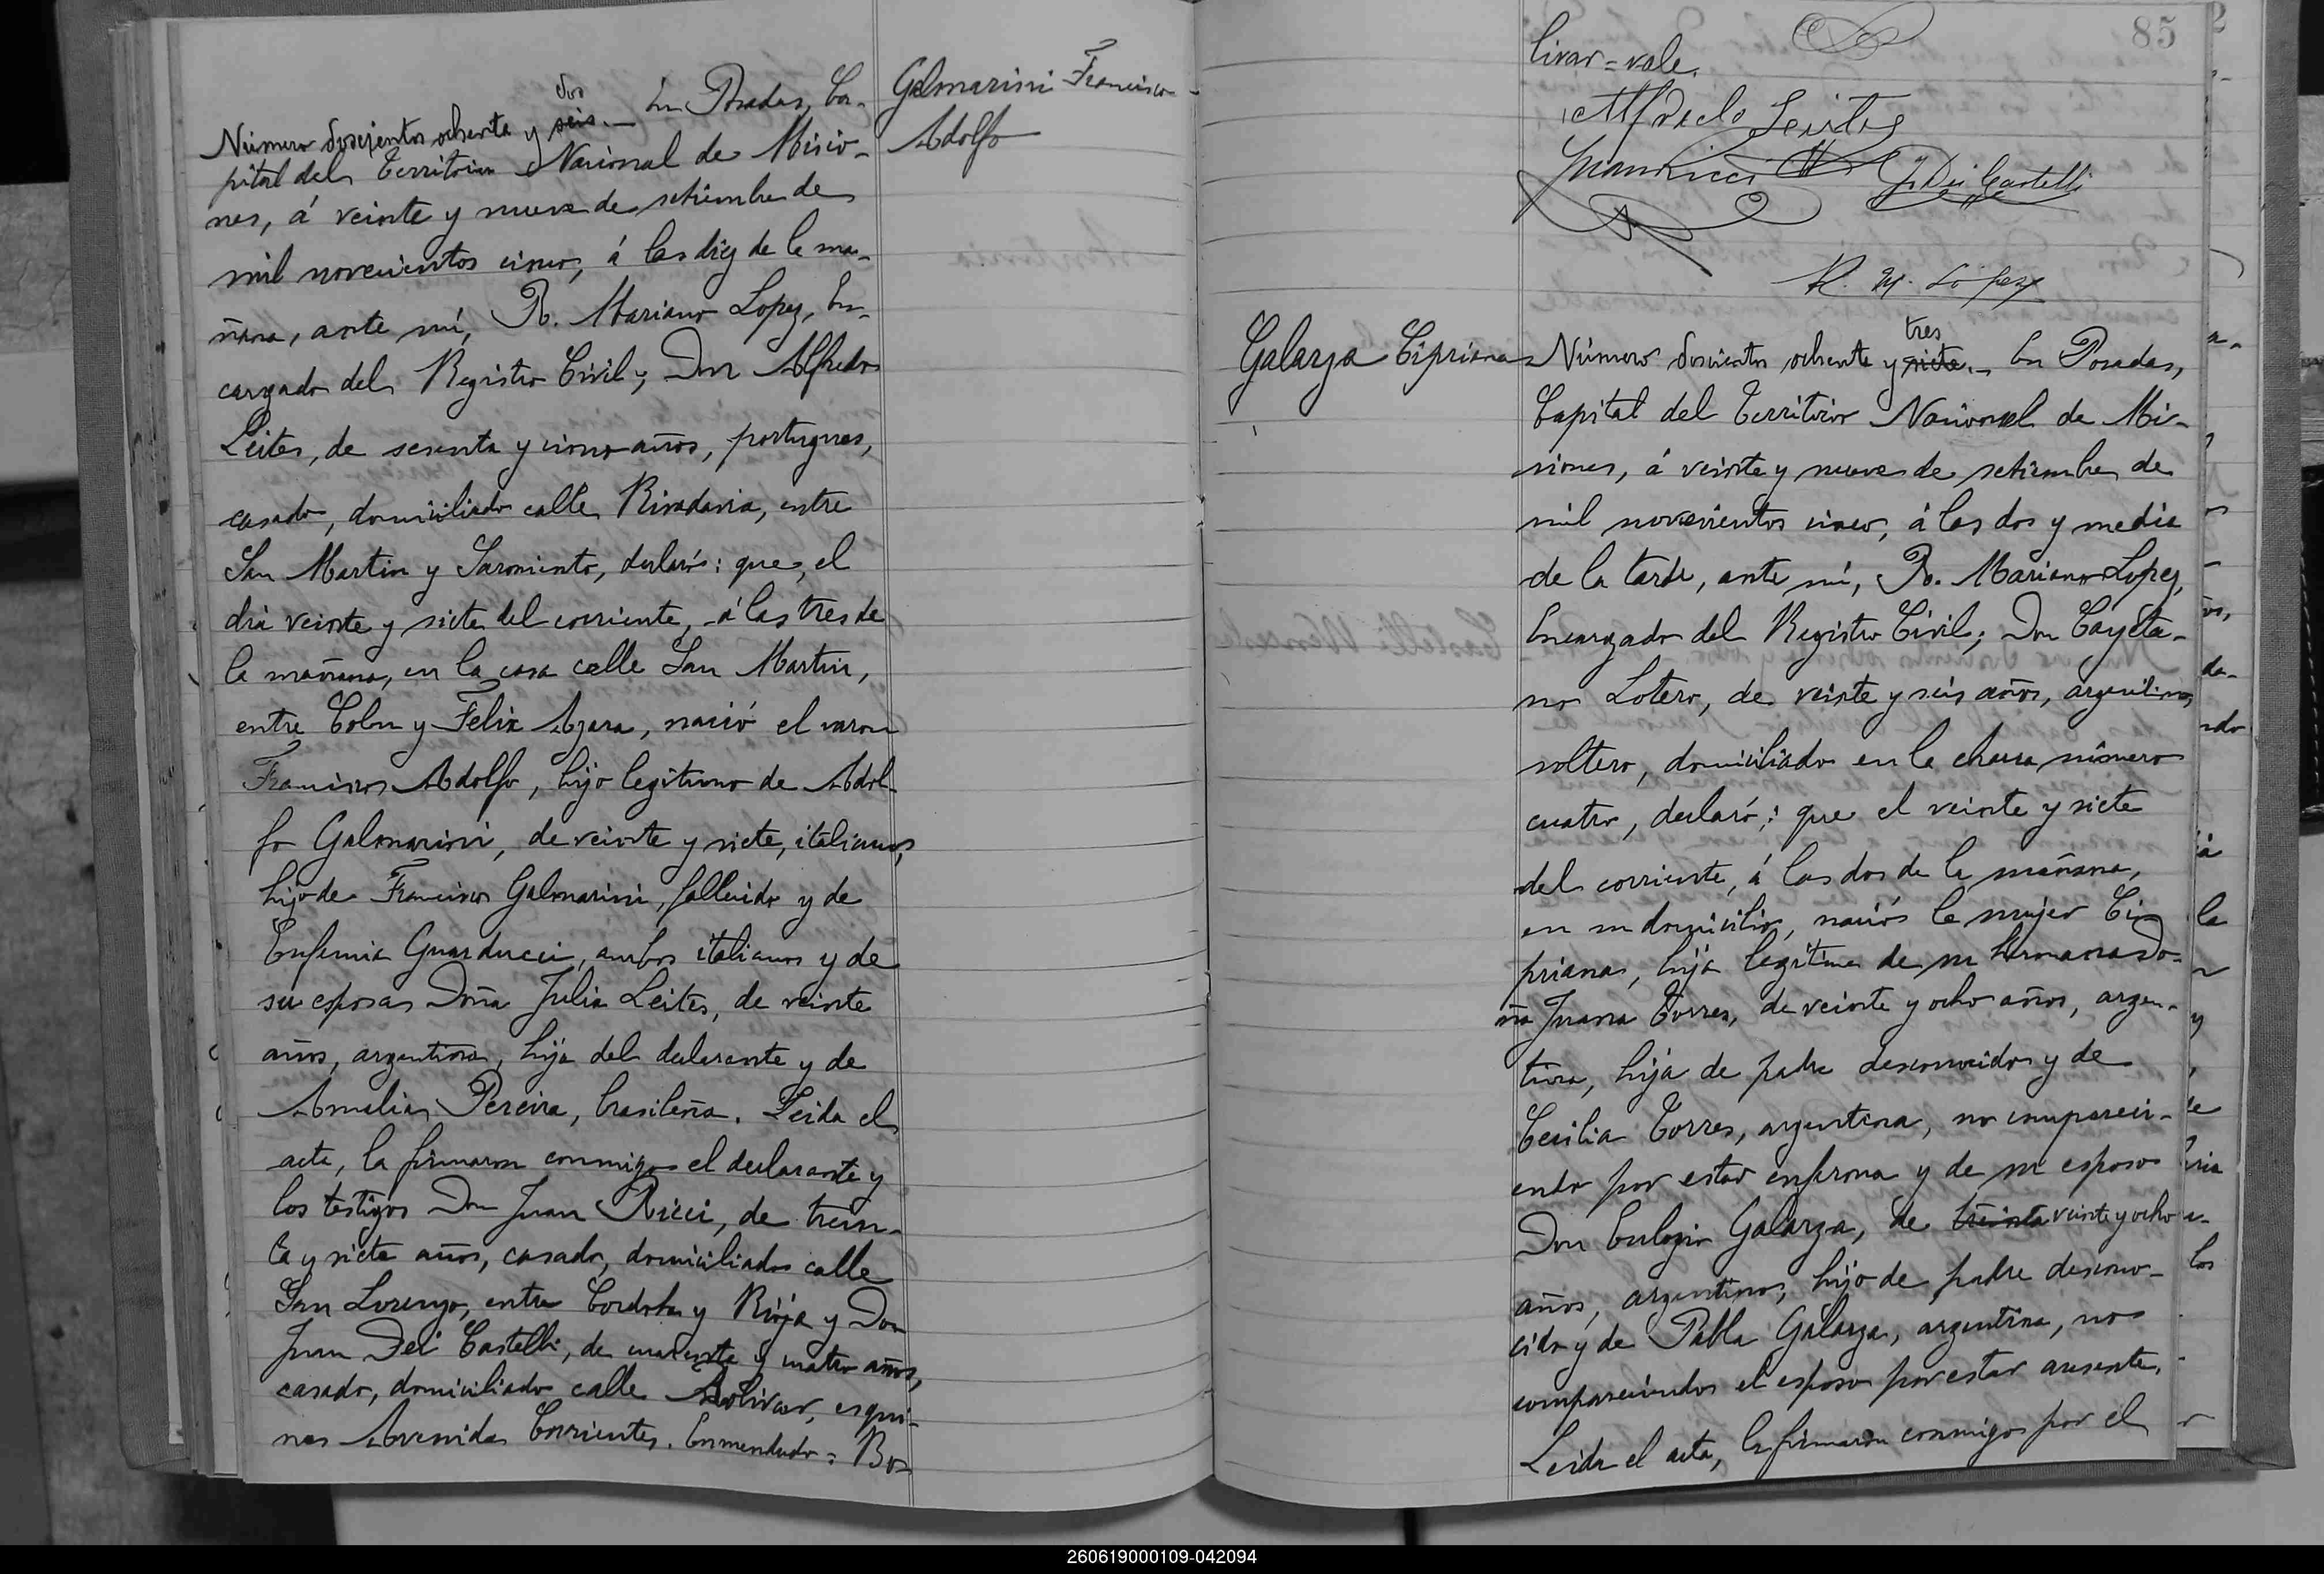 Galmarini Francisco
Adolfo
dos
Número doscientos ochenta y seis._ En Posadas, Ca-
pital del Territorio Nacional de Misio-
nes, á veinte y nueve de setiembre de
mil novecientos cinco, á las diez de la ma-
ñana, ante mí, R. Mariano Lopez, En-
cargado del Registro Civil; Don Alfredo
Leites, de sesenta y cinco años, portugues,
casado, domiciliado calle Rivadavia, entre
San Martin y Sarmiento, declaró: que, el
dia veinte y siete del corriente, á las tres de
la mañana, en la casa calle San Martin,
entre Colon y Felix Azara, nació el varon
Francisco Adolfo, hijo legitimo de Adol-
fo Galmarini, de veinte y siete, italiano,
hijo de Francisco Galmarini, fallecido y de
Eufemia Guarducci, ambos italianos y de
su esposa Doña Julia Leites, de veinte
años, argentina, hija del declarante y de
Amalia Pereira, brasileña. Leida el
acta, la firmaron conmigo el declarante y
los testigos Don Juan Ricci, de trein-
ta y siete años, casado, domiciliado calle
San Lorenzo, entre Cordoba y Rioja y Don
Juan Dei Castelli, de cuarenta y cuatro años,
casado, domiciliado calle Bolivar, esqui-
na Avenida Corrientes. Enmendado: Bo-
85
livar = vale.
Alfredo Leites
Juan Ricci J. Dei Castelli
R. M. Lopez
Galarza Cipriana
tres
Número doscientos ochenta y siete._ En Posadas,
Capital del Territorio Nacional de Mi-
siones, á veinte y nueve de setiembre de
mil novecientos cinco, á las dos y media
de la tarde, ante mí, R. Mariano Lopez,
Encargado del Registro Civil; Don Cayeta-
no Lotero, de veinte y seis años, argentino,
soltero, domiciliado en la chacra número
cuatro, declaró: que el veinte y siete
del corriente, á las dos de la mañana,
en su domicilio, nació la mujer Ci-
priana, hija legítima de su hermana Do-
ña Juana Torres, de veinte y ocho años, argen-
tina, hija de padre desconocido y de
Cecilia Torres, argentina, no compareci-
endo por estar enferma y de su esposo
Don Eulogio Galarza, de treinta veinte y ocho
años, argentino, hijo de padre descono-
cido y de Pabla Galarza, argentina, no
compareciendo el esposo por estar ausente.
Leida el acta, la firmaron conmigo por el
260619000109-042094